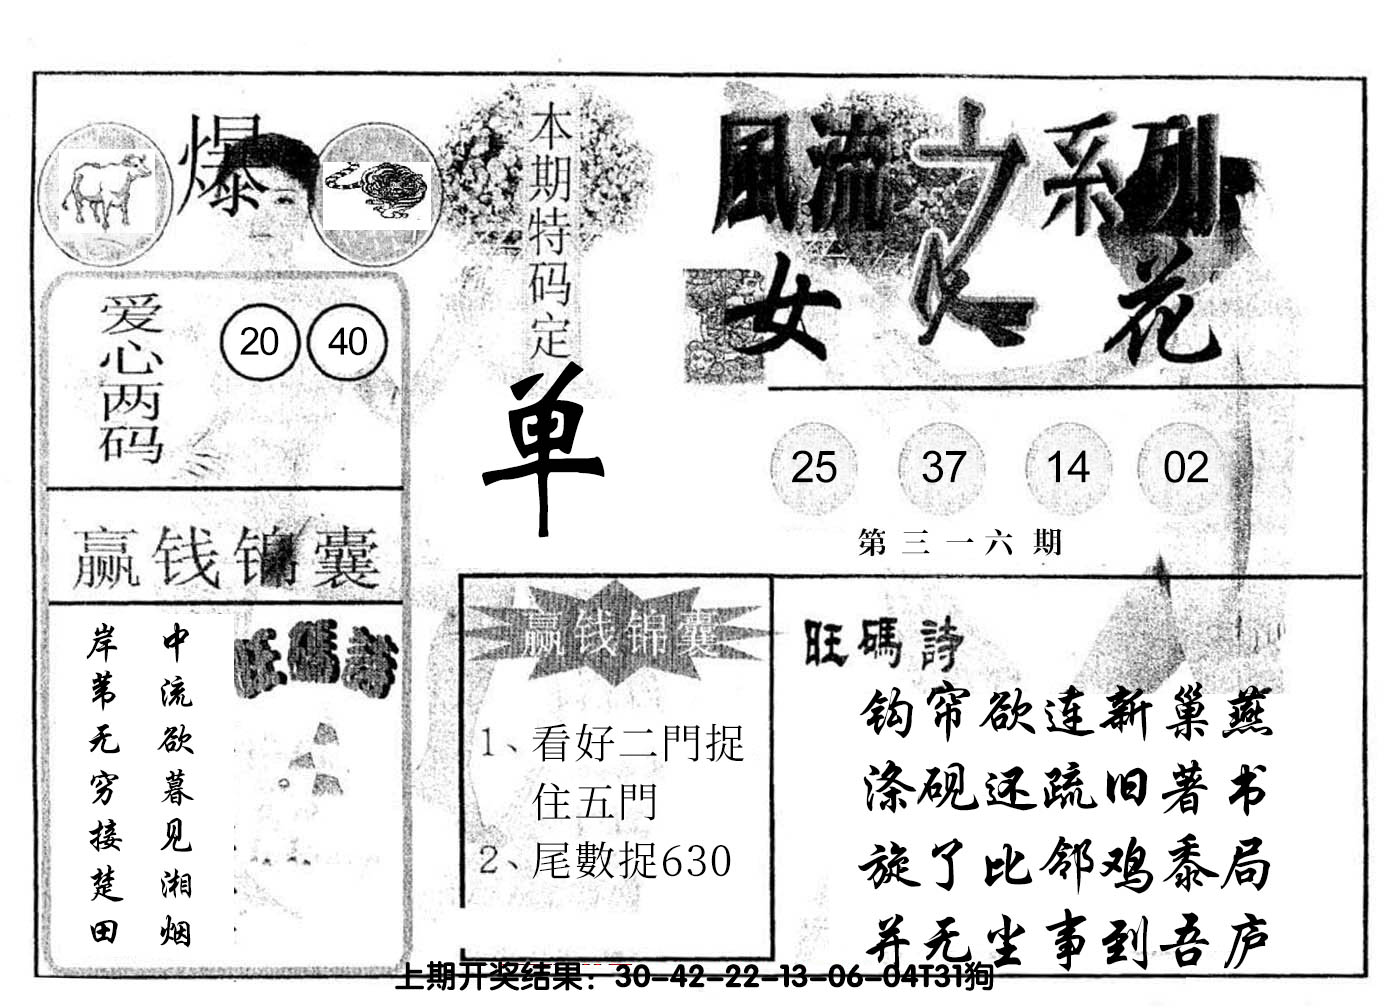 爆
本期特码定
单
風流之系列
女人花
爱心两码
20 40
25 37 14 02
第三一六期
赢钱锦囊
中流欲暮见湘烟
岸苇无穷接楚田
旺碼詩
赢钱锦囊
1、看好二門捉
住五門
2、尾數捉630
旺碼詩
钩帘欲连新巢燕
涤砚还疏旧著书
旋了比邻鸡黍局
并无尘事到吾庐
上期开奖结果：30-42-22-13-06-04T31狗